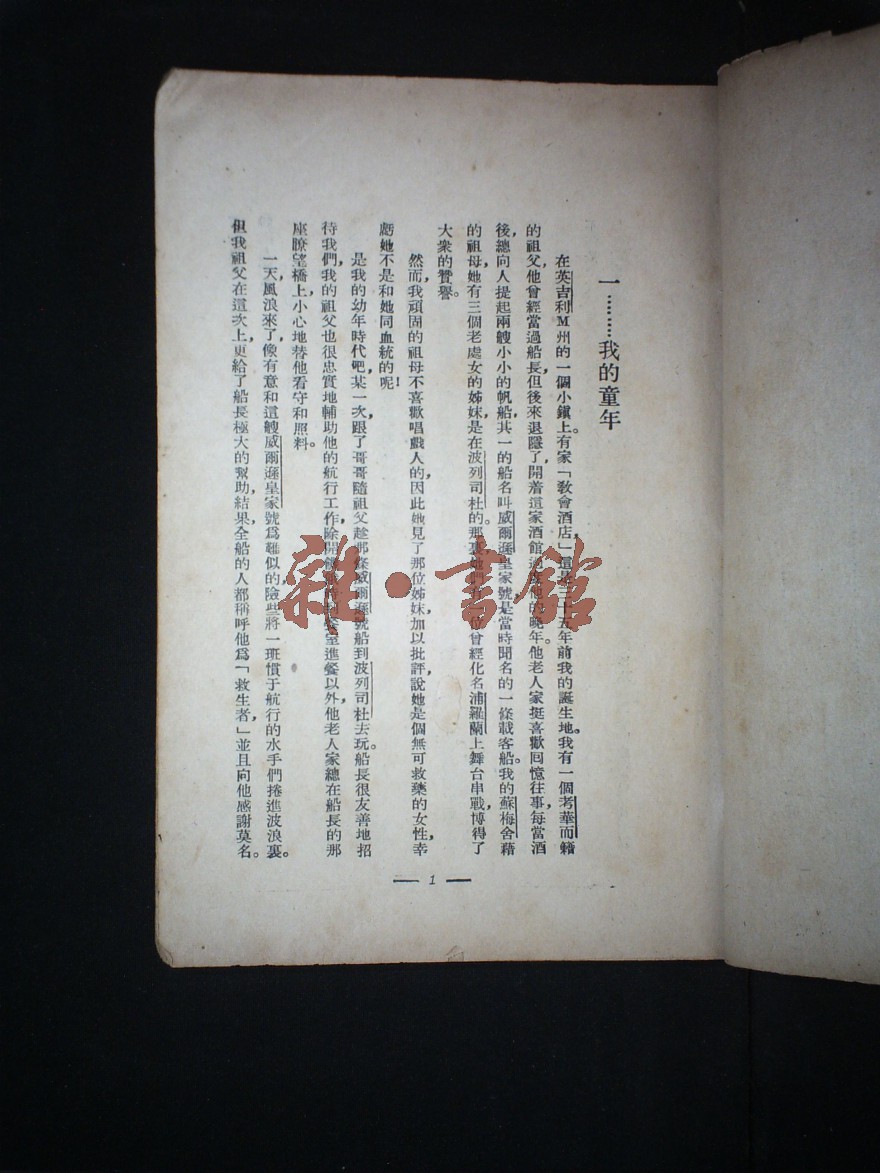 一………我的童年
在英吉利M州的一個小鎮上，有家「敎會酒店」，這是三十五年前我的誕生地。我有一個考華而籍
的祖父，他曾經當過船長，但後來退隱了，開着這家酒館過度他的晚年。他老人家挺喜歡囘憶往事，每當酒
後，總向人提起兩艘小小的帆船，其一的船名叫威爾遜皇家號，是當時聞名的一條載客船。我的蘇梅舍藉
的祖母，她有三個老處女的姊妹，是在波列司杜的。那裏，她們有一位曾經化名浦羅蘭上舞台串戰，博得了
大衆的贊譽。
然而，我頑固的祖母不喜歡唱戲人的，因此她見了那位姊妹加以批評，說她是個無可救藥的女性，幸
虧她不是和她同血統的呢！
是我的幼年時代吧，某一次，跟了哥哥隨祖父趁那條威爾遜號船到波列司杜去玩。船長很友善地招
待我們，我的祖父也很忠實地輔助他的航行工作，除開 進餐以外，他老人家總在船長的那
座瞭望橋上小心地替他看守和照料。
一天，風浪來了，像有意和這艘威爾遜皇家號爲難似的，險些將一班慣于航行的水手們捲進波浪裏。
但我祖父在這次上，更給了船長極大的幫助，結果全船的人都稱呼他爲「救生者」，並且向他感謝莫名。
— 1 —
雜·書館